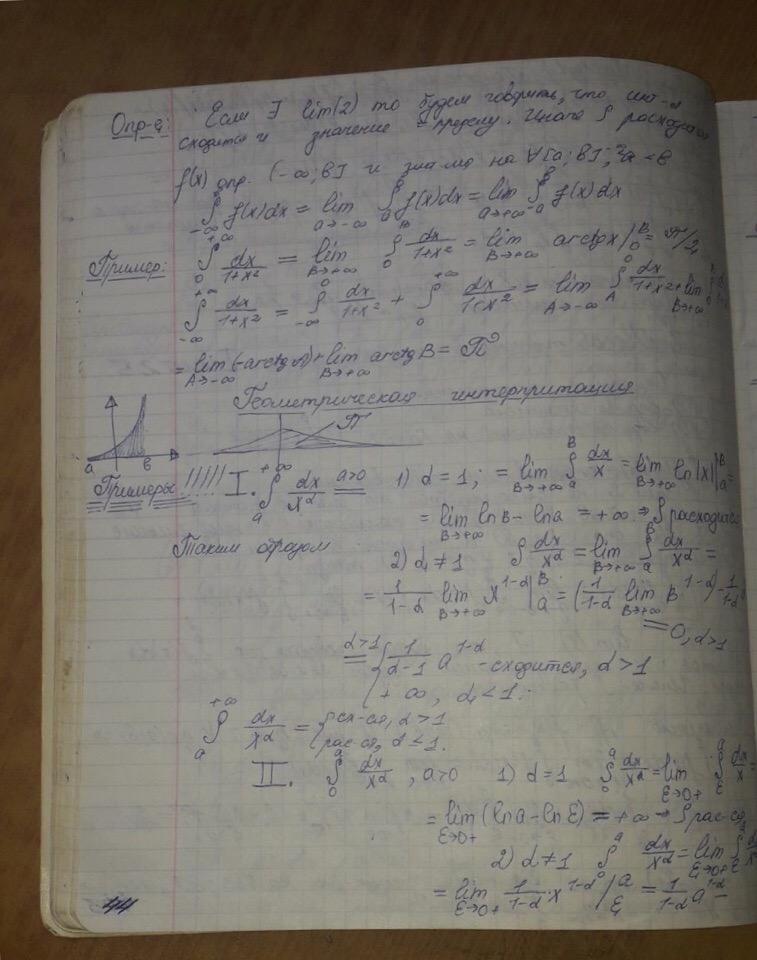 Опр-е: Если ∃ lim(2) то будем говорить, что инт-л
сходится и значение = пределу. Иначе ∫ расходится
f(x) опр. (-∞; B] и инт-ма на ∀[a; B];
∫_{-∞}^{B} f(x)dx = lim_{a→-∞} ∫_{a}^{B} f(x)dx = lim_{a→+∞} ∫_{-a}^{B} f(x)dx
Пример: ∫_{0}^{+∞} dx/(1+x²) = lim_{B→+∞} ∫_{0}^{B} dx/(1+x²) = lim_{B→+∞} arctgx |_{0}^{B} = П/2
∫_{-∞}^{+∞} dx/(1+x²) = ∫_{-∞}^{0} dx/(1+x²) + ∫_{0}^{+∞} dx/(1+x²) = lim_{A→-∞} ∫_{A}^{0} dx/(1+x²) + lim_{B→+∞} ∫_{0}^{B}
= lim_{A→-∞} (-arctg A) + lim_{B→+∞} arctg B = П
Геометрическая интерпритация
П
a в
Примеры !!!!! I. ∫_{a}^{+∞} dx/x^α a>0 1) α = 1; = lim_{B→+∞} ∫_{a}^{B} dx/x = lim_{B→+∞} ln|x| |_{a}^{B} =
= lim_{B→+∞} ln B - ln a = +∞ ⇒ ∫ расходится
Таким образом 2) α ≠ 1 ∫ dx/x^α = lim_{B→+∞} ∫_{a}^{B} dx/x^α =
= 1/(1-α) lim_{B→+∞} x^{1-α} |_{a}^{B} = (1/(1-α) lim_{B→+∞} B^{1-α}) - 1/(1-α)
= 0, α>1
α>1 = { 1/(α-1) a^{1-α} - сходится, α > 1
+∞, α < 1.
∫_{a}^{+∞} dx/x^α = { сх-ся, α > 1
рас-ся, α ≤ 1.
II. ∫_{0}^{a} dx/x^α, a>0 1) α = 1 ∫_{0}^{a} dx/x^α = lim_{ε→0+} ∫_{ε}^{a} dx/x =
= lim_{ε→0+} (ln a - ln ε) = +∞ ⇒ ∫ рас-ся
2) α ≠ 1 ∫_{0}^{a} dx/x^α = lim_{ε→0+} ∫_{ε}^{a}
= lim_{ε→0+} 1/(1-α) · x^{1-α} |_{ε}^{a} = 1/(1-α) a^{1-α} -
44